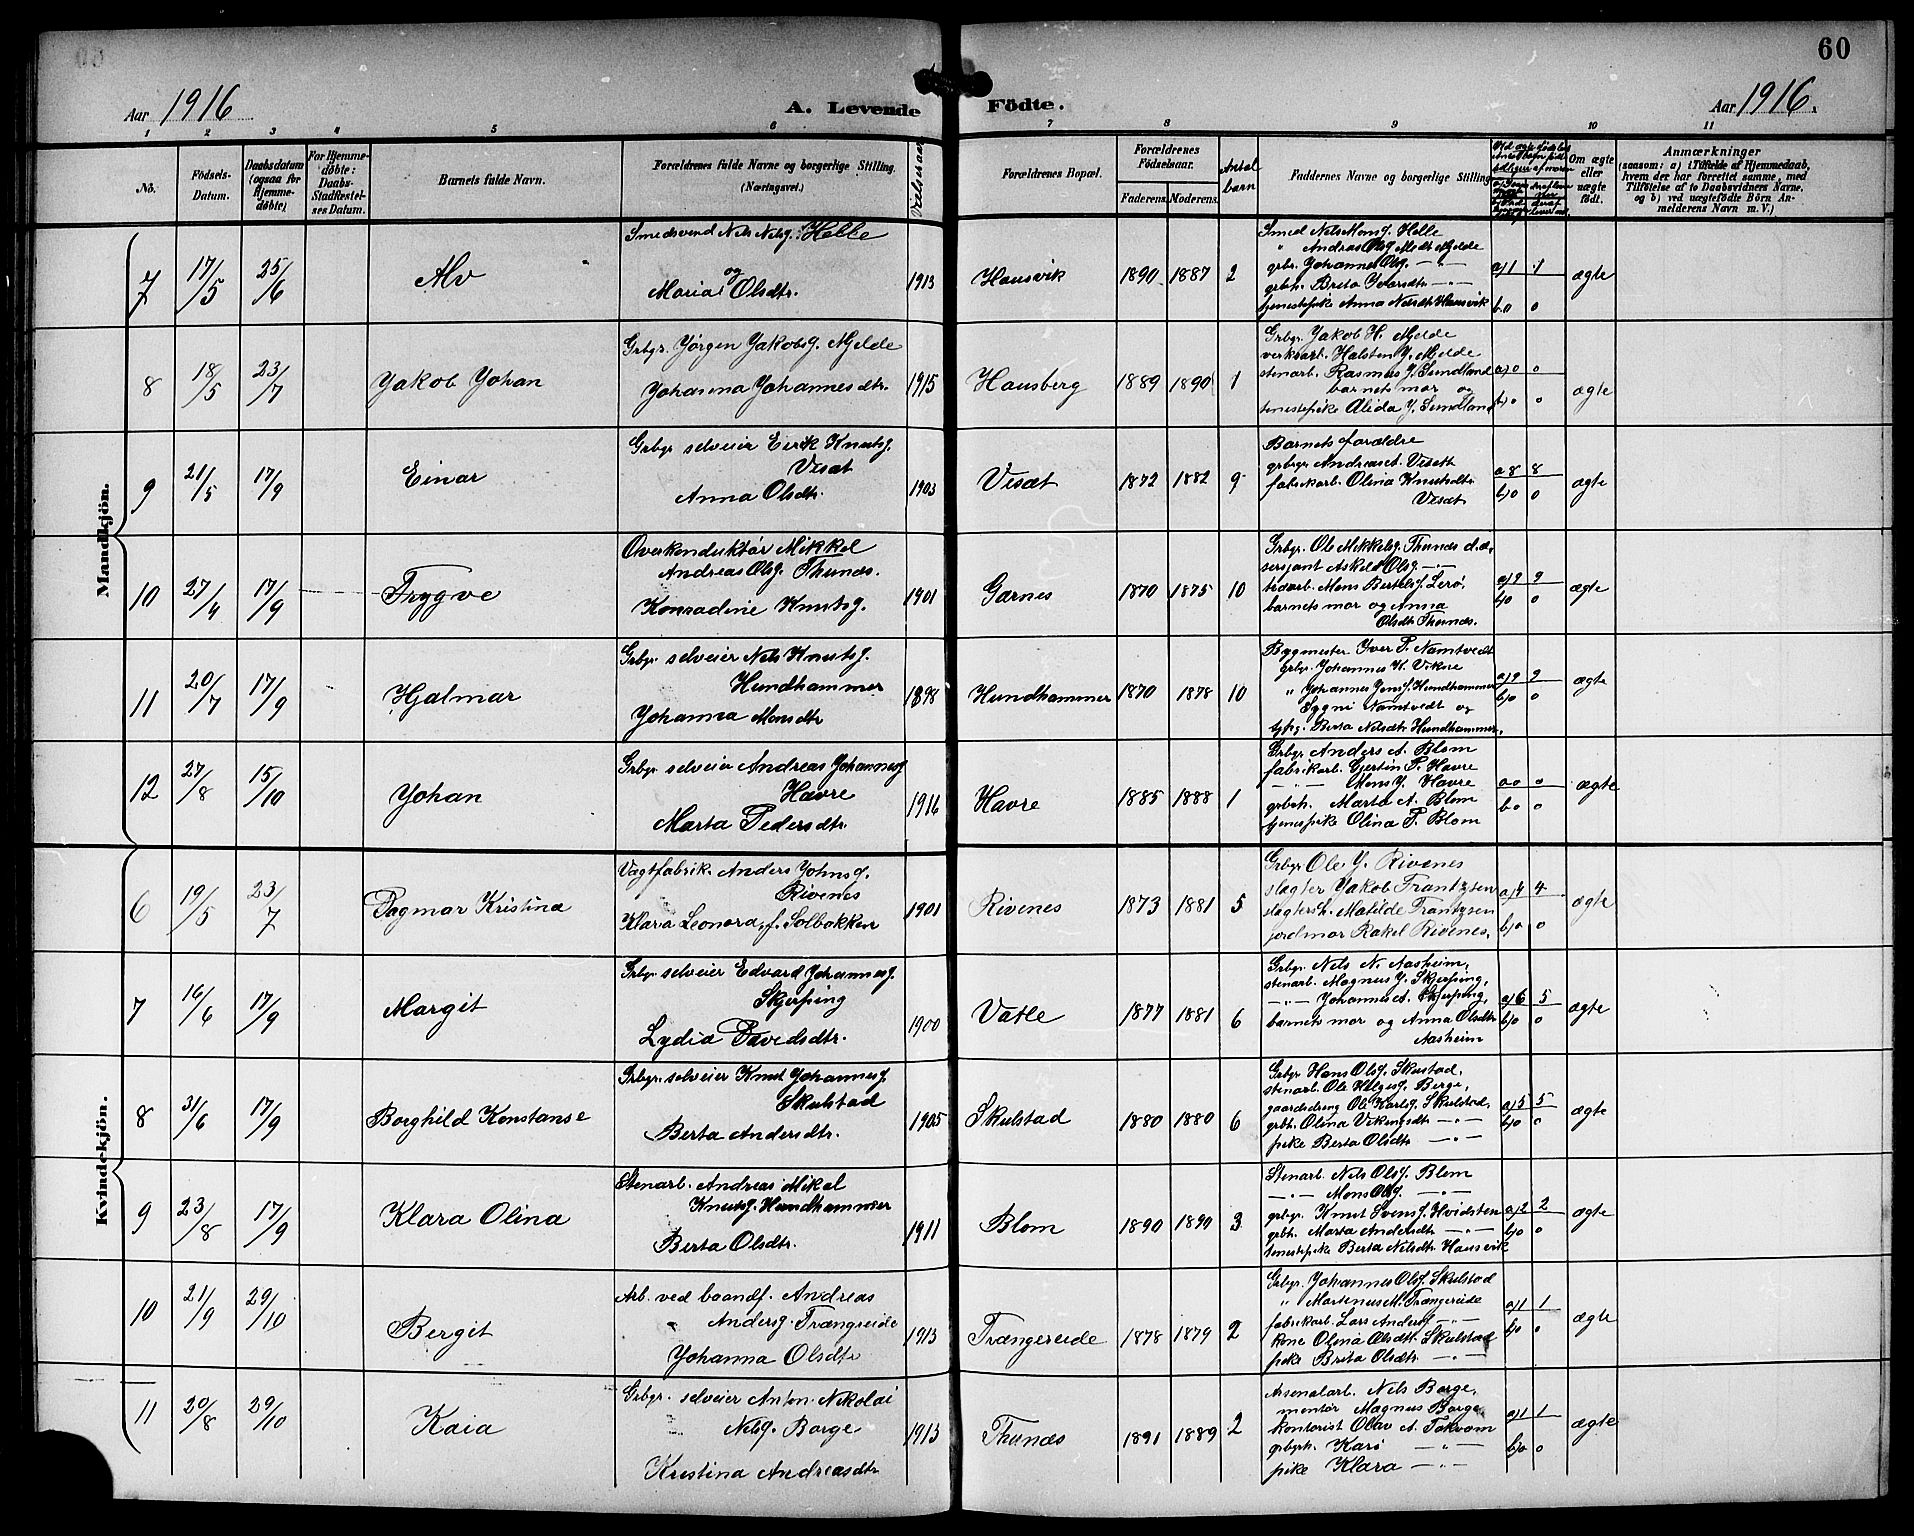 60
Aar 1916
A. Levende Födte.
Aar 1916.
1 2 3 4 5 6 7 8 9 10 11
No.
Födsels-
Datum.
Daabsdatum
(ogsaa for
Hjemme-
døbte)
For Hjemme-
døbte:
Daabs-
Stadfæstel-
ses Datum.
Barnets fulde Navn.
Forældrenes fulde Navne og borgerlige Stilling
(Næringsvei.)
Vielsesaar
Forældrenes Bopæl.
Forældrenes
Födselsaar.
Faderens.
Moderens.
Antal
barn
Faddernes Navne og borgerlige Stilling
Om ægte
eller
uægte
födt.
Anmærkninger
(saasom: a) i Tilfælde af Hjemmedaab,
hvem der har forrettet samme, med
Tilföielse af to Daabsvidners Navne.
og b) ved uægtefödte Börn An-
melderens Navn m. V.)
Mandkjön.
7 17/5 25/6 Alv
Smedsvend Nels Nelsg. Helle
og
Maria Olsdtr.
1913 Hausvik 1890 1887 2
Smed Nels Monsg. Helle
" Andreas Olsg. Medt Mjelde
grbr. Johannes Olsg. —"—
grbh. Brita Ivarsdtr —"—
tjenestepike Anna Nelsdtr Hausvik
a)1 1
b.0 0
ægte
8 18/5 23/7 Yakob Yohan
Grbgr. Yørgen Yakobsg. Mjelde
Yohanna Yohannesdtr.
1915 Hausberg 1889 1890 1
Grbgr. Yakob H. Mjelde
verksarb. Halsten Y. Mjelde
stenarb. Rasmus Y. Sundland
barnets mor og
tenestepike Alida Y. Sundland
a)0 0
b)0 0
ægte
9 21/5 17/9 Einar
Grbgr selveier Eirik Knutsg.
Vesæt
Anna Olsdtr.
1903 Vesæt 1872 1882 9
Barnets forældre
grbgr Andreas A. Vesæt
fabrikarb. Olina Knutsdtr
Vesæt
a 8 8
b)0 0
ægte
10 27/4 17/9 Trygve
Overkonduktør Mikkel
Andreas Olsg. Thunæs.
Konradine Knutsg.
1901 Garnes 1870 1875 10
Grbgr. Ole Mikkelsg. Thunæs d.æ,
sersjant Askeld Olsg. —"—
Mons Bertelsg. Lerö,
barnets mor og Anna
Olsdtr Thunæs.
a)9 9
b)0 0
ægte
11 20/7 17/9 Hjalmar
Grbgr. selveier Nels Knutsg.
Hundhammer
Yohanna Monsdtr
1898 Hundhammer 1870 1878 10
Bygmester Iver T. Namtvedt
grbgr. Yohannes H. Vikne
" Yohannes Jensg. Hundhammer
Sygni Namtvedt og
Berta Nelsdtr Hundhammer,
a)9 9
b)0 0
ægte
12 27/8 15/10 Yohan
Grbgr selveier Andreas Yohannesg
Havre
Marta Pedersdtr.
1916 Havre 1885 1888 1
Grbgr Anders A. Blom
fabrikarb. Gjertin P. Havre
—"— Mons Y. Havre
grbrh. Marta A. Blom
tjenespike Olina P. Blom
a 0 0
b 0 0
ægte
Kvindekjön.
6 19/5 23/7 Dagmar Kristina
Vagtfabrik. Anders Yohnsg.
Rivenes
Klara Leonora, f. Solbakken
1901 Rivenes 1873 1881 5
Grbgr Ole Y. Rivenes
slagter Yakob Frantzsen
slagtersh. Matilde Frantzsen
jordmor Rakel Rivenes.
a)4 4
b)0 0
ægte
7 16/6 17/9 Margit
Grbgr selveier Edvard Yohannesg.
Skjerping
Lydia Davedsdtr.
1900 Vatle 1877 1881 6
Grbgr. Nels N. Aasheim,
stenarb. Magnus Y. Skjerping,
—"— Yohannes A. Skjerping,
barnets mor og Anna Olsdtr
Aasheim
a)6 5
b)0 0
ægte
8 31/6 17/9 Borghild Konstanse
Grbgr. selveier Knut Yohannesg
Skulstad
Berta Andersdtr.
1905 Skulstad 1880 1880 6
Grbgr Hans Olsg. Skulstad,
stenarb. Ole Helgesg. Berge,
gaardsdreng Ole Karlsg. Skulstad,
grbh. Olina Vikingsdtr —"—
pike Berta Olsdtr —"—
a)5 5
b)0 0
ægte
9 23/8 17/9 Klara Olina
Stenarb. Andreas Mikal
Knutsg. Hundhammer
Berta Olsdtr.
1911 Blom 1890 1890 3
Stenarb. Nels Olsg. Blom
—"— Mons Olsg. —"—
grbgr. Knut Svensg. Hvidsten
grbh. Marta Andersdtr —"—
tenestepike Berta Nelsdtr. Hausvik
a)2 2
b)0 0
ægte
10 21/9 29/10 Bergit
Arb. ved baandf. Andreas
Andersg. Trængereide
Yohanna Olsdtr
1913 Trængereide 1878 1879 2
Grbgr. Yohannes Olsg. Skulstad
" Martinus M. Trængereide
fabrikarb. Lars Andersg —"—
kone Olina Olsdtr. Skulstad
pike Brita Olsdtr —"—
a)1 1
b)0 0
ægte
11 20/8 29/10 Kaia
Grbgr. selveier Anton Nikolai
Nelsg. Borge
Kristina Andreasdtr
1913 Thunæs 1891 1889 2
Arsenalarb. Nels Borge,
mentør Magnus Borge
kontorist Olav A. Takvam
grbgrh. Kari —"—
pike Klara —"—
a)1 1
b)0 0
ægte